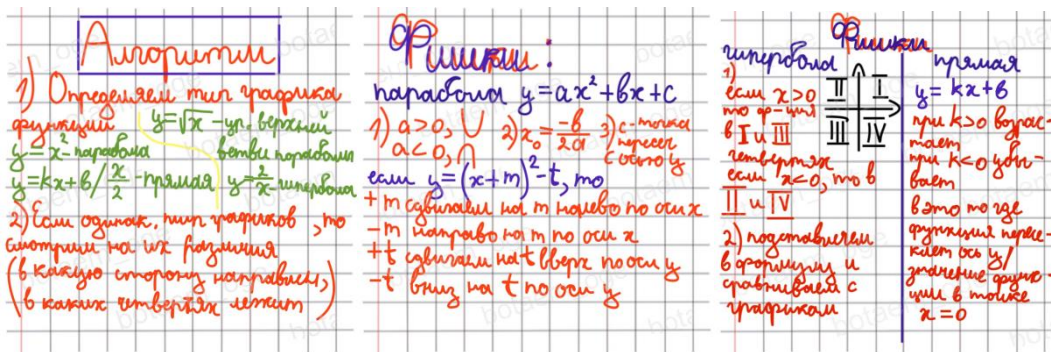 Алгоритм
1) Определяем тип графика
функции y=√x - ур. верхней
y=x²-парабола ветви параболы
y=kx+b/x/2-прямая y=2/x-гипербола
2) Если одинак. тип графиков, то
смотрим на их различия
(в какую сторону направлен,
в каких четвертях лежит)
Фишки:
парабола y=ax²+bx+c
1) a>0, ∪ 2) x₀=-b/2a 3) c-точка
a<0, ∩ пересеч
с осью y
если y=(x+m)²-t, то
+m сдвигаем на m налево по оси x
-m направо на m по оси x
+t сдвигаем на t вверх по оси y
-t вниз на t по оси y
Фишки
гипербола
1)
если x>0
то ф-ция
в I и III
четвертях
если x<0, то в
II и IV
2) подставляем
в формулу и
сравниваем с
графиком
II I
III IV
прямая
y=kx+b
при k>0 возрас-
тает
при k<0 убы-
вает
b это то где
функция пересе-
кает ось y/
значение функ-
ции в точке
x=0